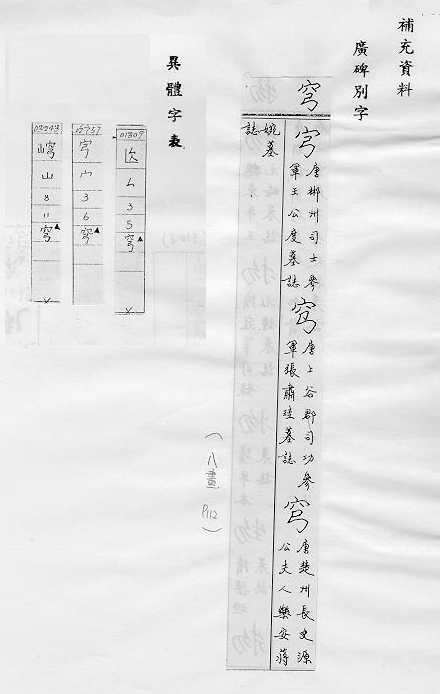 補充資料
廣碑別字
穹
穹 唐郴州司士參軍王公度墓誌
穹 唐上谷郡司功參軍張肅珪墓誌
穹 唐楚州長史源公夫人樂安蔣婉墓誌
(八畫 P112)
異體字表
01309
厶
3
5
穹▲
宀
3
6
穹▲
山
8
11
穹▲